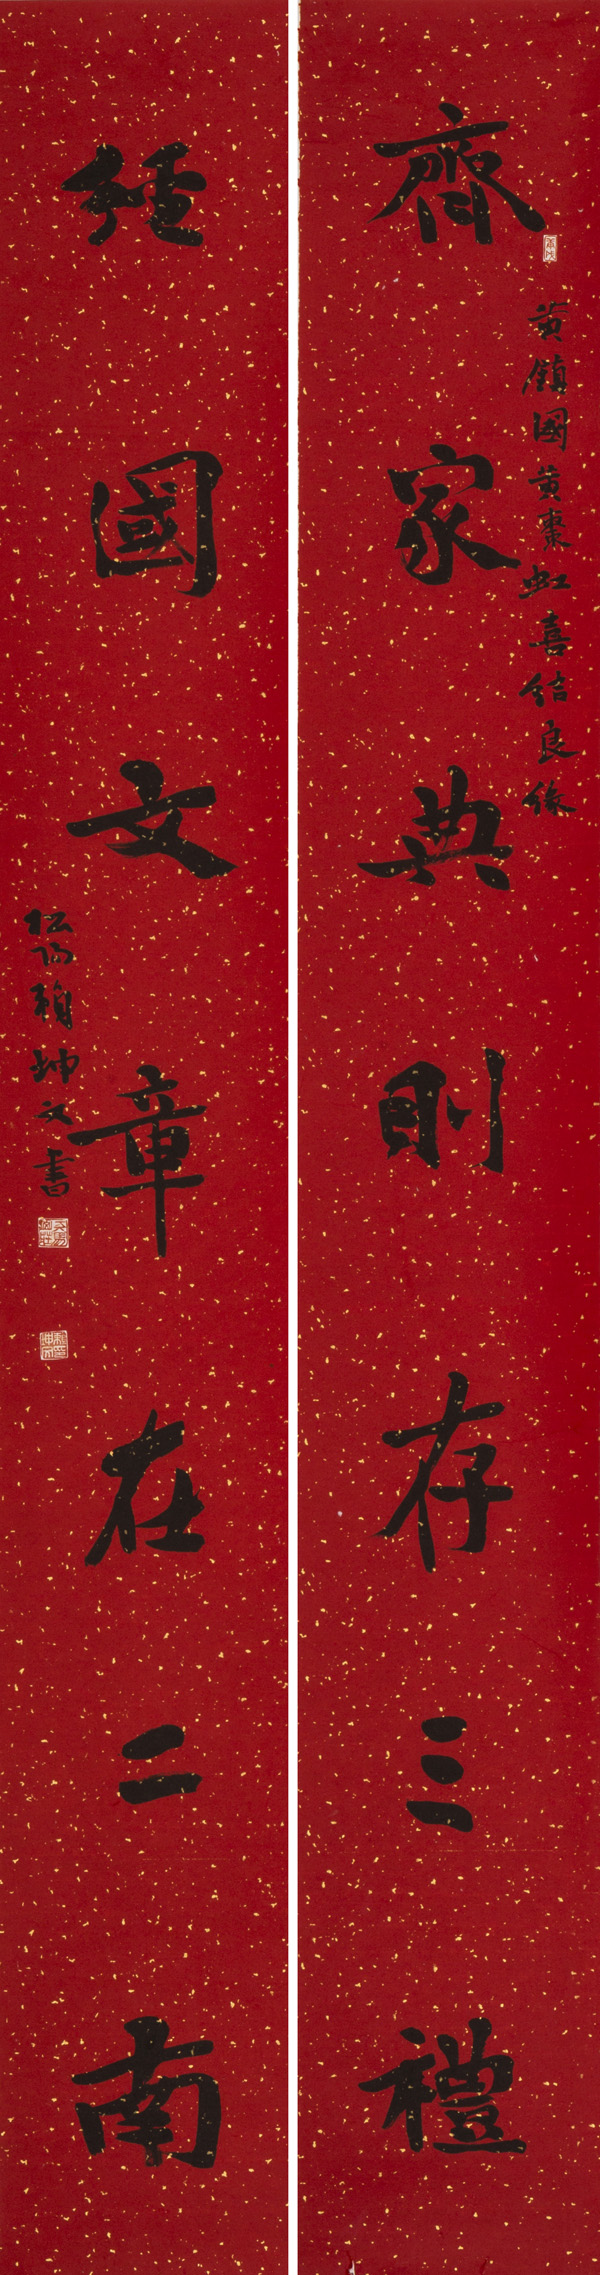 齊家典則存三禮
黃鎮國黃棗虹喜結良緣
經國文章在二南
松陽賴坤文書